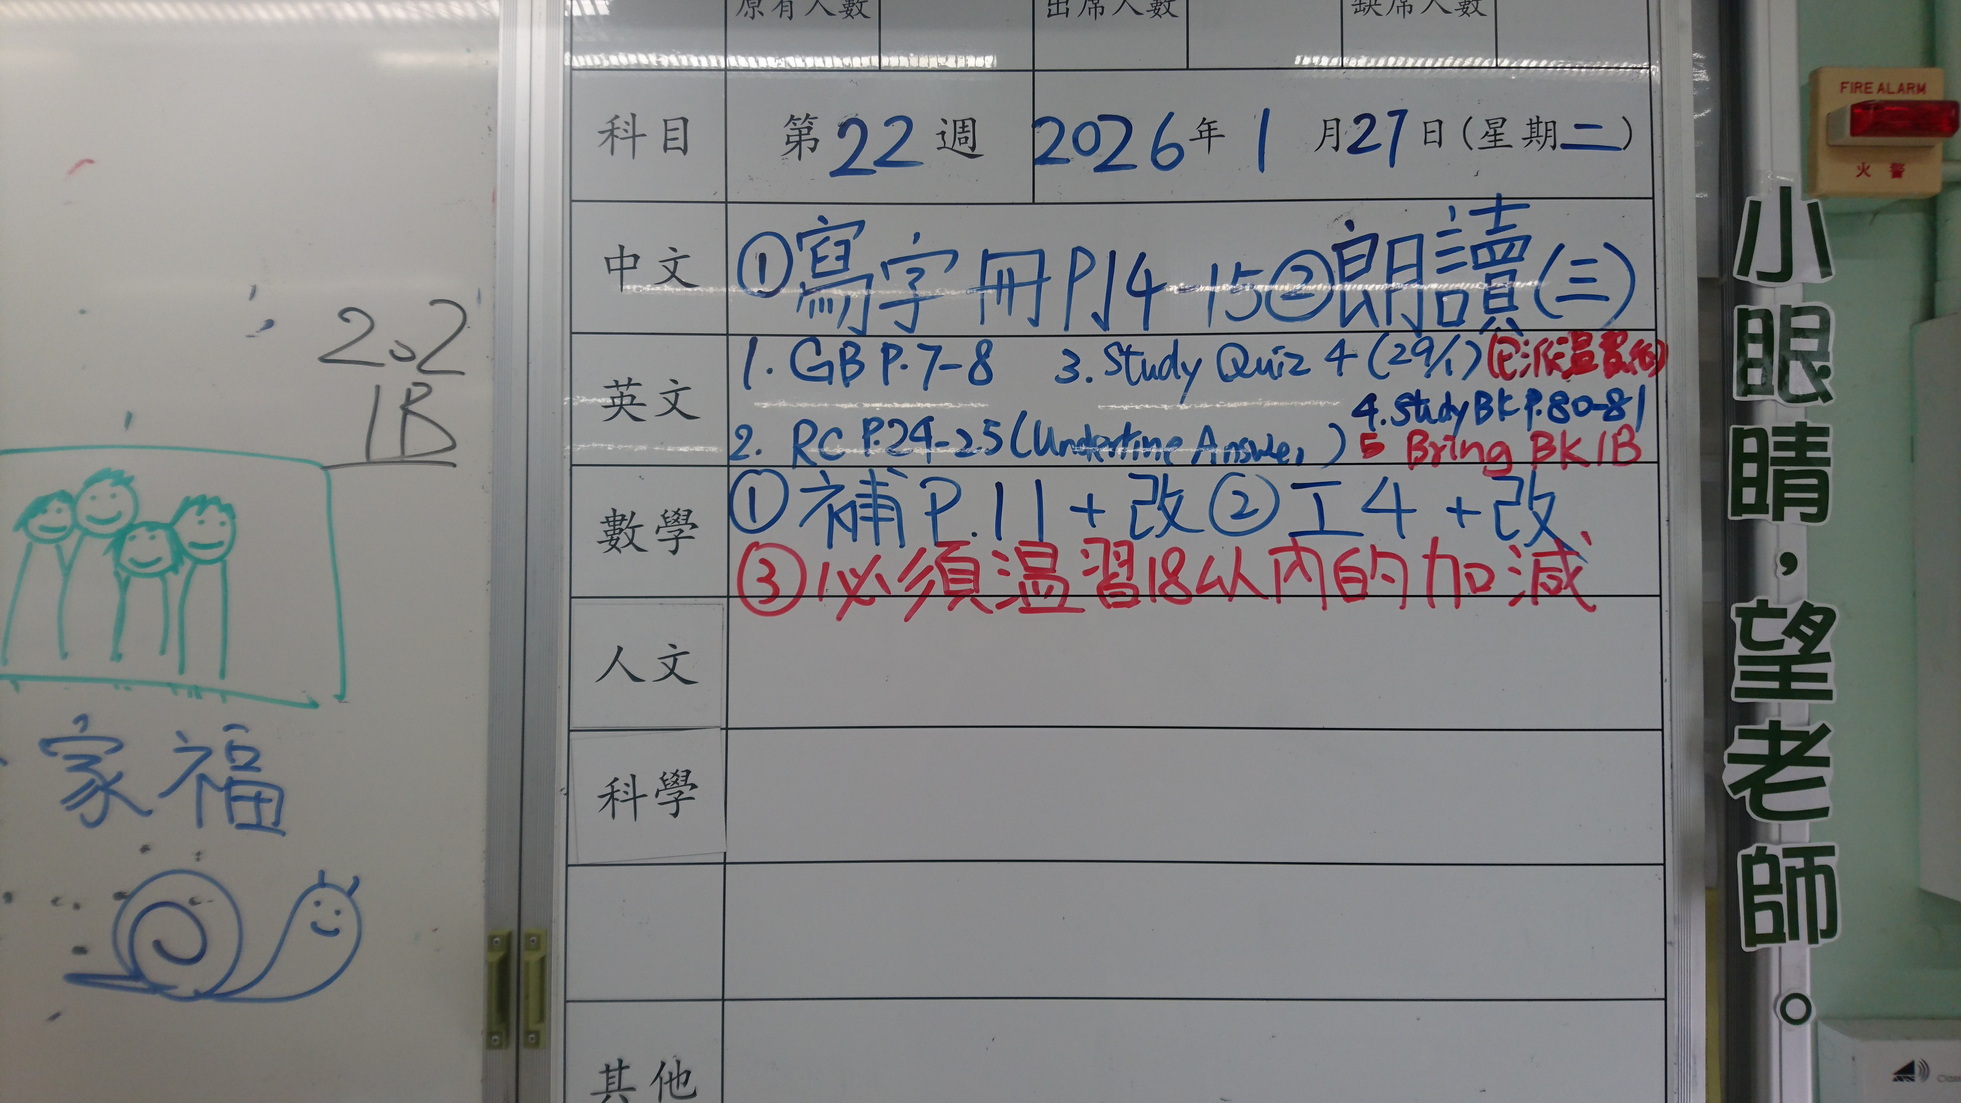 原有人數 出席人數 缺席人數
科目 第22週 2026年1月27日(星期二)
中文 ①寫字冊P14-15②朗讀(三)
英文 1. GB P.7-8 3. Study Quiz 4 (29/1) (已派温習紙)
4. Study BK P.80-81
2. RC P.24-25 (Underline Answer) 5 Bring BK 1B
數學 ①補P.11+改②工4+改
③必須温習18以內的加減
人文
科學
其他
2.2
1B
家福
FIRE ALARM
火警
小眼睛，望老師。